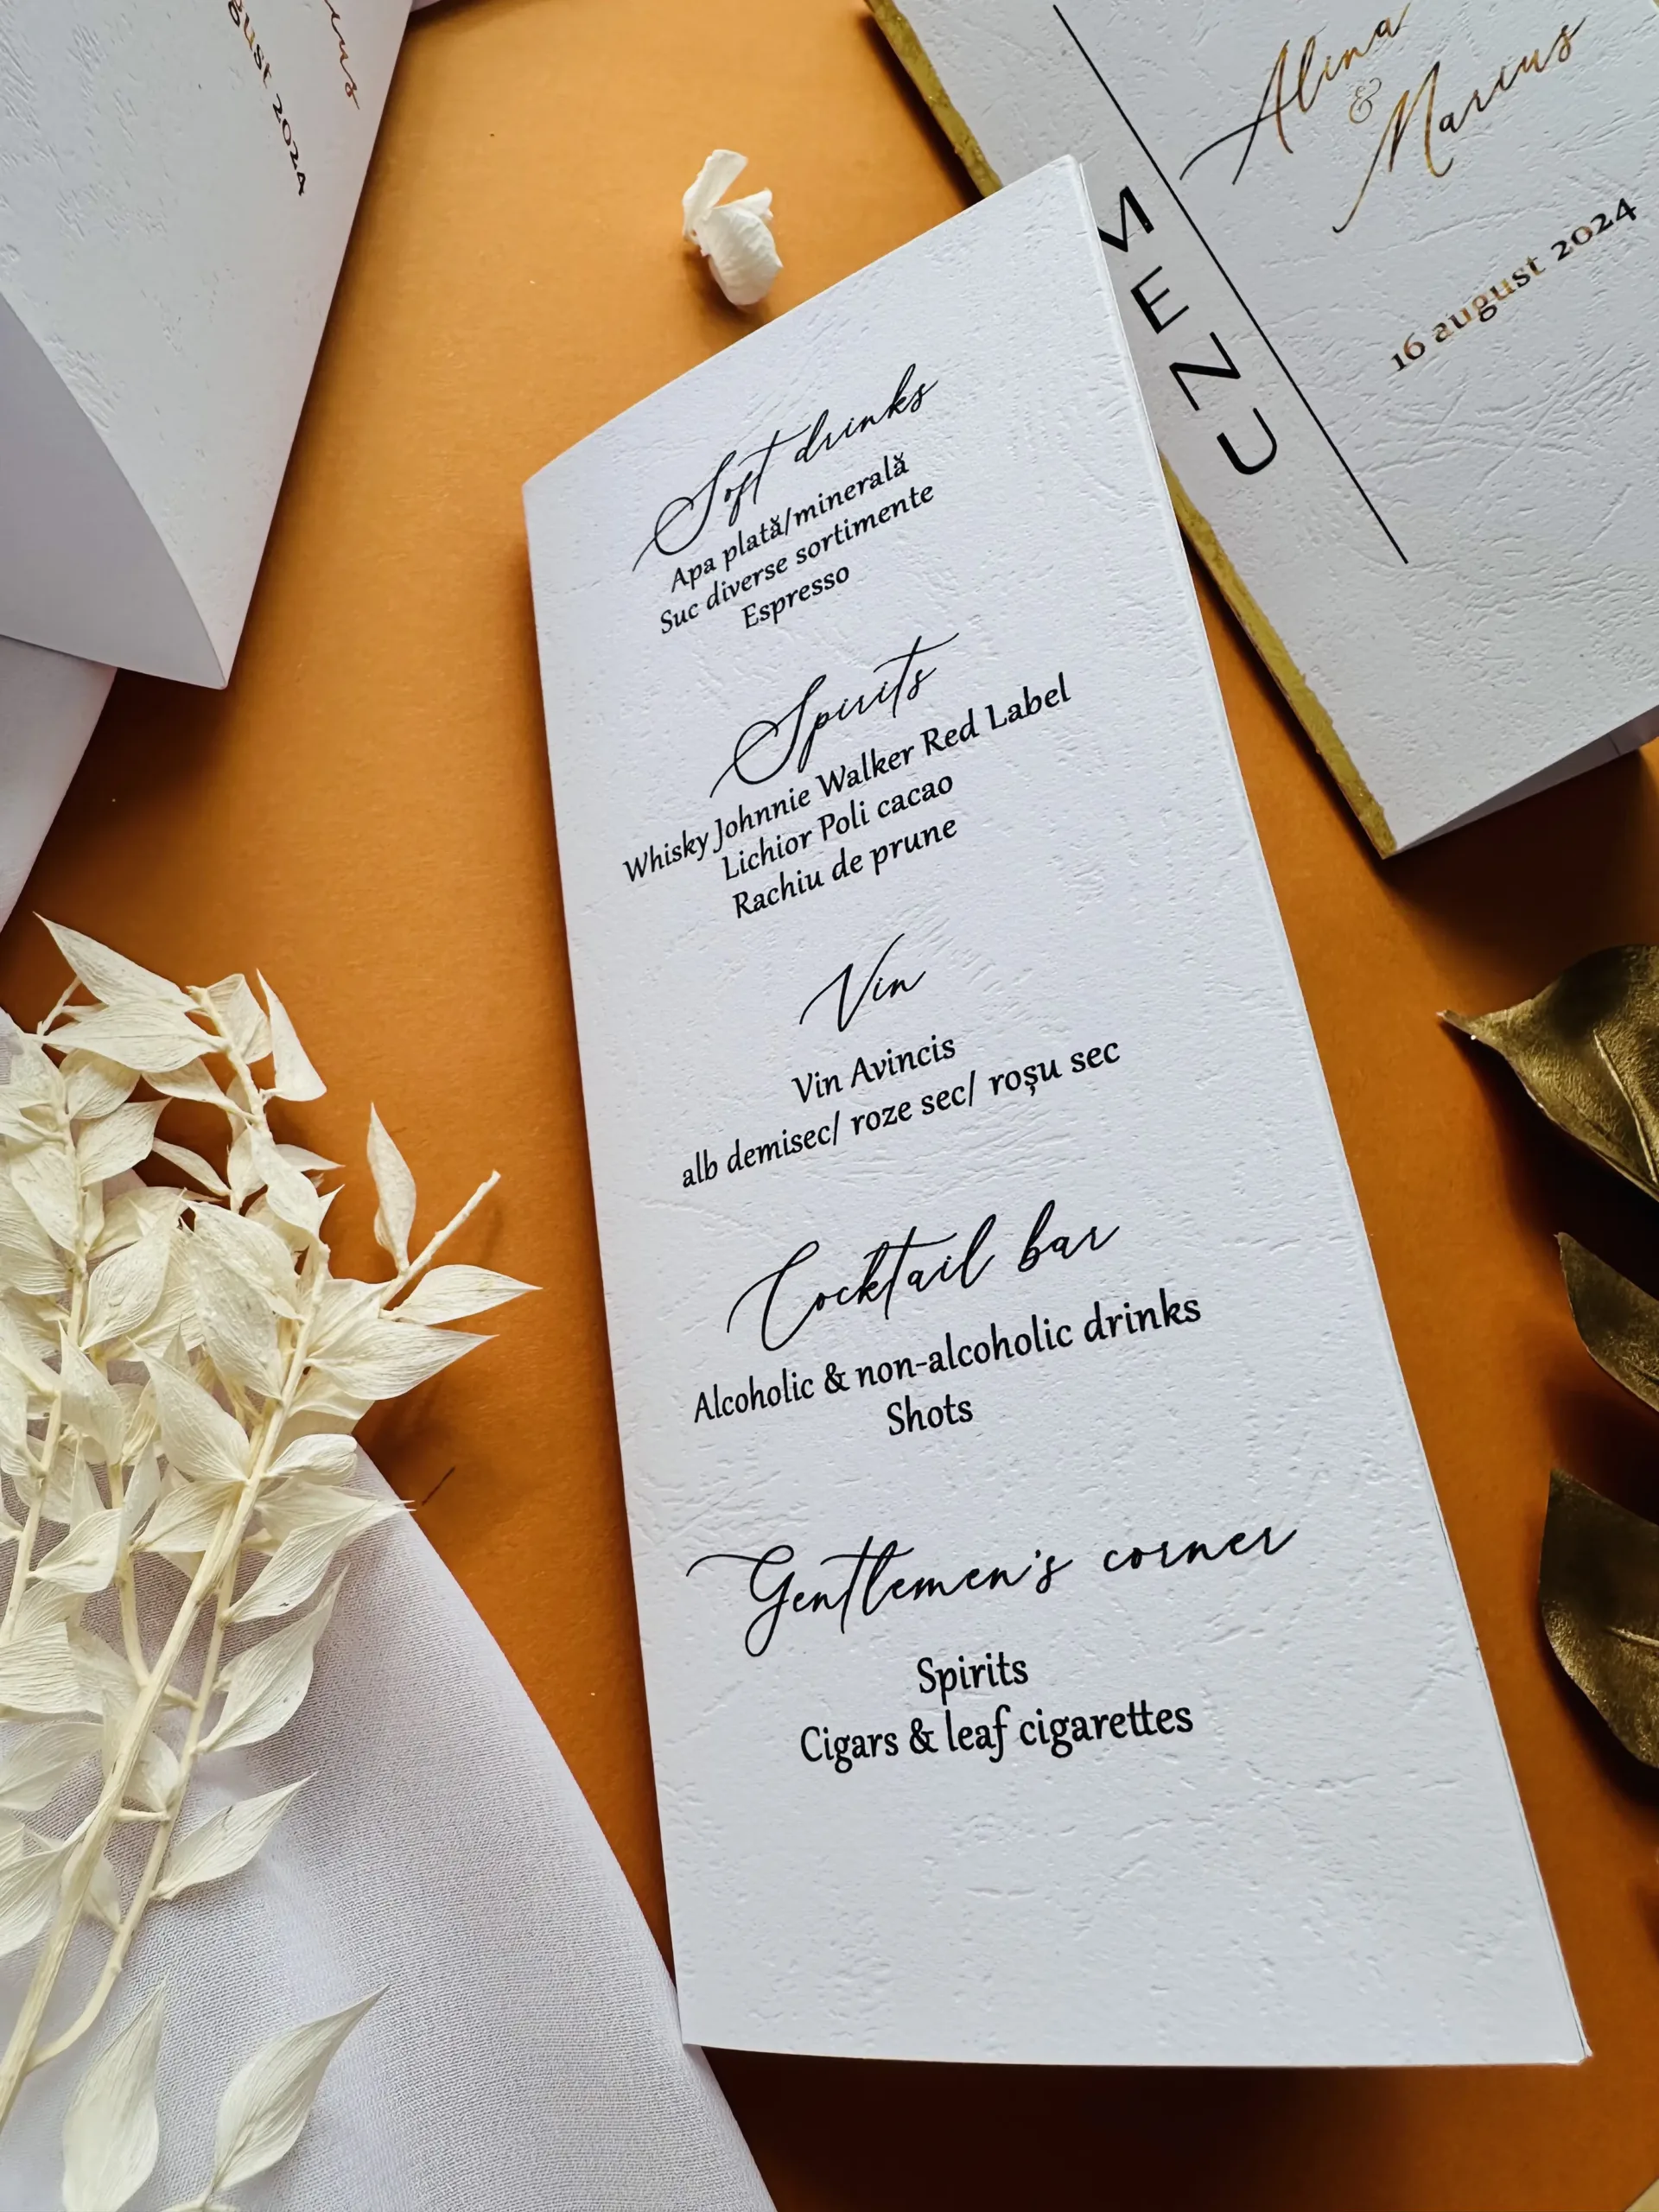 2024
Alina
&
Marius
16 august 2024
MENU
Soft drinks
Apa plată/minerală
Suc diverse sortimente
Espresso
Spirits
Whisky Johnnie Walker Red Label
Lichior Poli cacao
Rachiu de prune
Vin
Vin Avincis
alb demisec/ roze sec/ roșu sec
Cocktail bar
Alcoholic & non-alcoholic drinks
Shots
Gentlemen's corner
Spirits
Cigars & leaf cigarettes